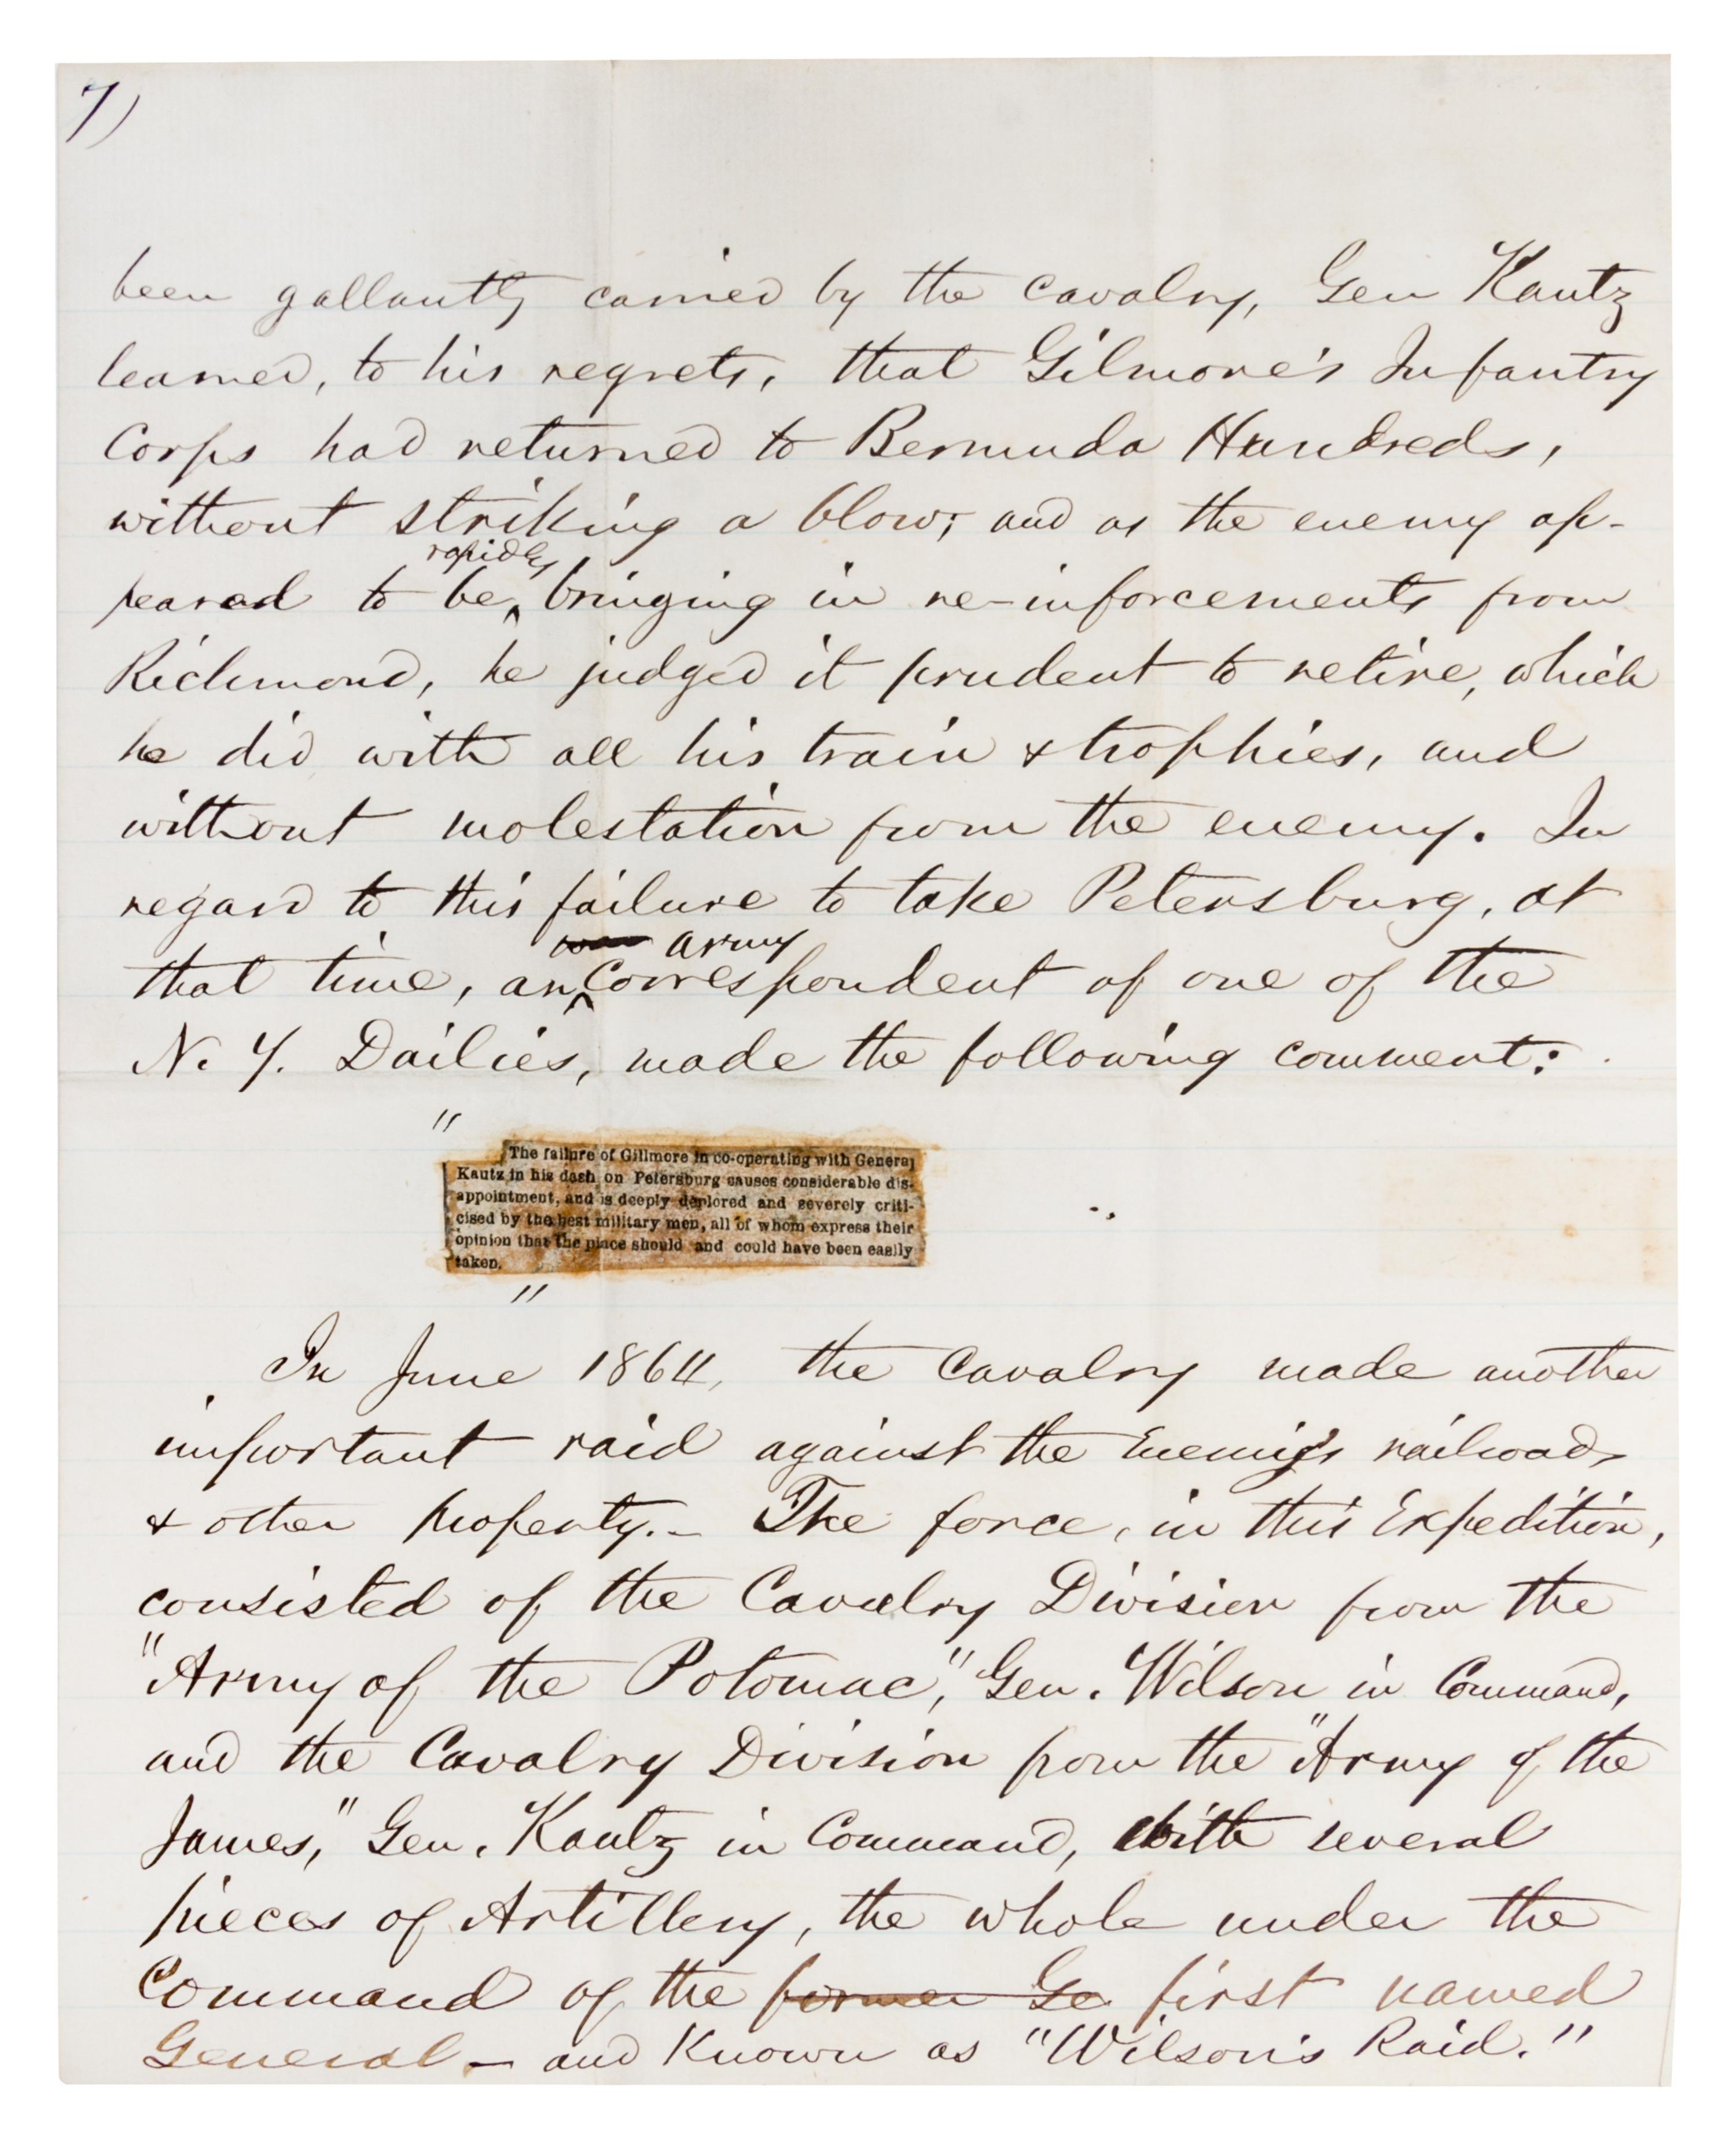 7)
been gallantly carried by the cavalry, Gen Kautz
learned, to his regrets, that Gilmore's Infantry
Corps had returned to Bermuda Hundreds,
without striking a blow; and as the enemy ap-
rapidly
peared to be bringing in re-inforcements from
Richmond, he judged it prudent to retire, which
he did with all his train & trophies, and
without molestation from the enemy. In
regard to this failure to take Petersburg, at
army
that time, an Correspondent of one of the
N. Y. Dailies, made the following comment:
"
The failure of Gillmore in co-operating with General
Kautz in his dash on Petersburg causes considerable dis-
appointment, and is deeply deplored and severely criti-
cised by the best military men, all of whom express their
opinion that the place should and could have been easily
taken.
"
In June 1864, the Cavalry made another
important raid against the Enemy's railroads
& other property.- The force, in this Expedition,
consisted of the Cavalry Division from the
"Army of the Potomac," Gen. Wilson in Command,
and the Cavalry Division from the "Army of the
James," Gen. Kautz in Command, with several
pieces of Artillery, the whole under the
Command of the former Ge first named
General - and Known as "Wilson's Raid."